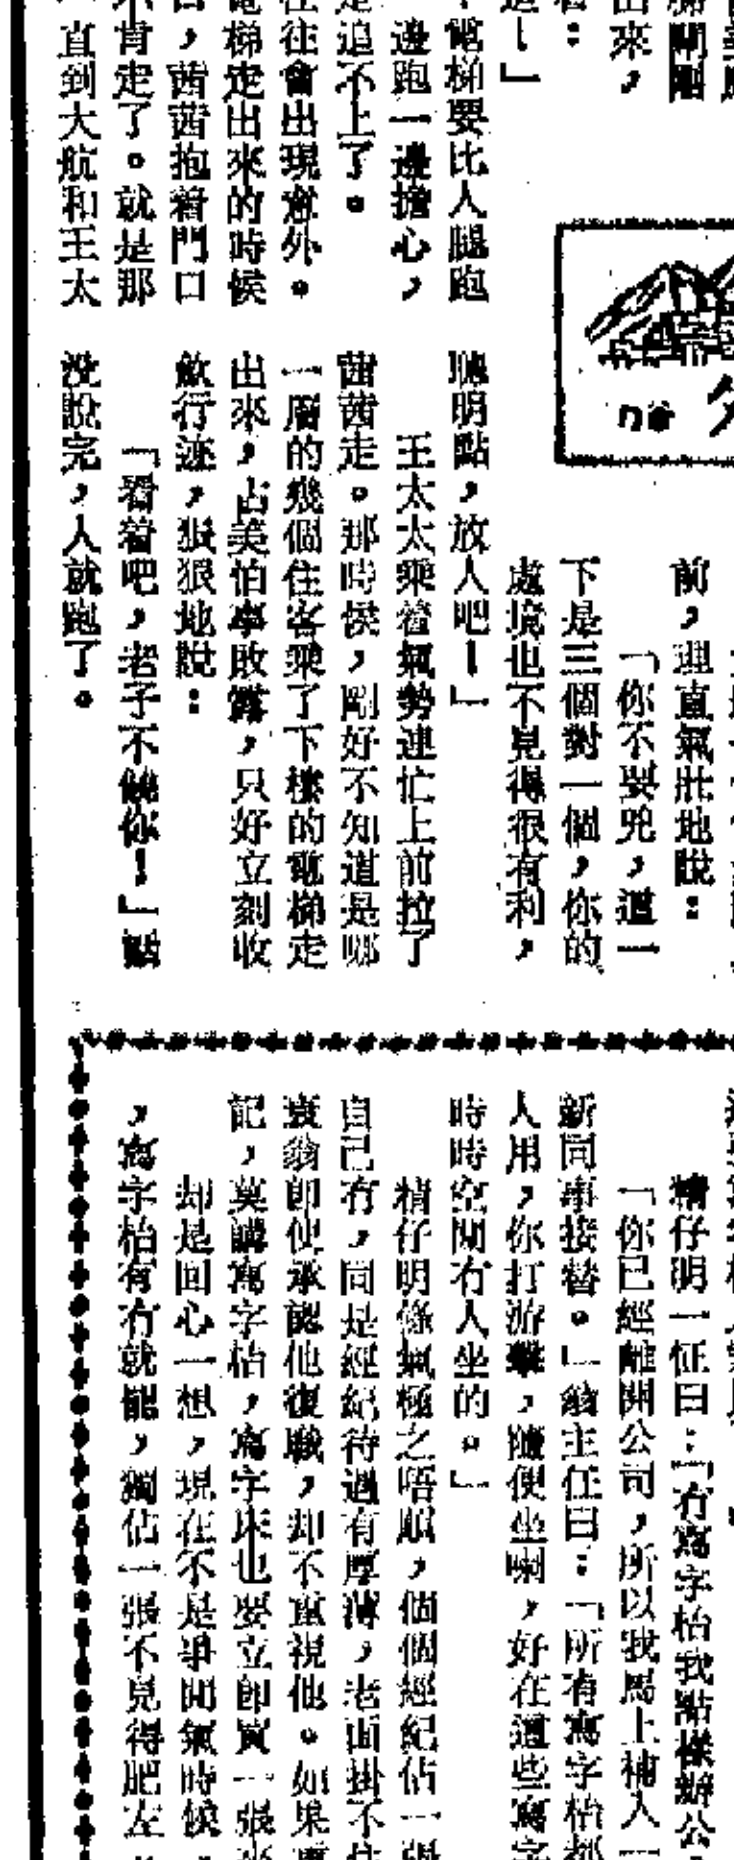 出來，
着：
電梯要比人腿跑
邊跑一邊擔心，
是追不上了。
往往會出現意外。
電梯走出來的時候
，茜茜抱着門口
不肯走了。就是那
直到大航和王太
前，理直氣壯地說：
「你不要兇，這一
下是三個對一個，你的
處境也不見得很有利，
聰明點，放人吧！」
王太太乘着氣勢連忙上前拉了
茜茜走。那時候，剛好不知道是哪
一層的幾個住客乘了下樓的電梯走
出來，占美怕事敗露，只好立刻收
歛行迹，狠狠地說：
「看着吧，老子不饒你！」話
没說完，人就跑了。
精仔明一怔曰：「冇寫字枱我點樣辦公，
「你已經離開公司，所以我馬上補入一
新同事接替。」翁主任曰：「所有寫字枱都
人用，你打游擊，隨便坐喇，好在這些寫字
時時空閒冇人坐的。」
精仔明條氣極之唔順，個個經紀佔一張
自己冇，同是經紀待遇有厚薄，老面掛不住
衰翁即使承認他復職，却不重視他。如果
記，莫講寫字枱，寫字床也要立即買一張
却是回心一想，現在不是爭閒氣時候，
，寫字枱有冇就罷，獨佔一張不見得肥左